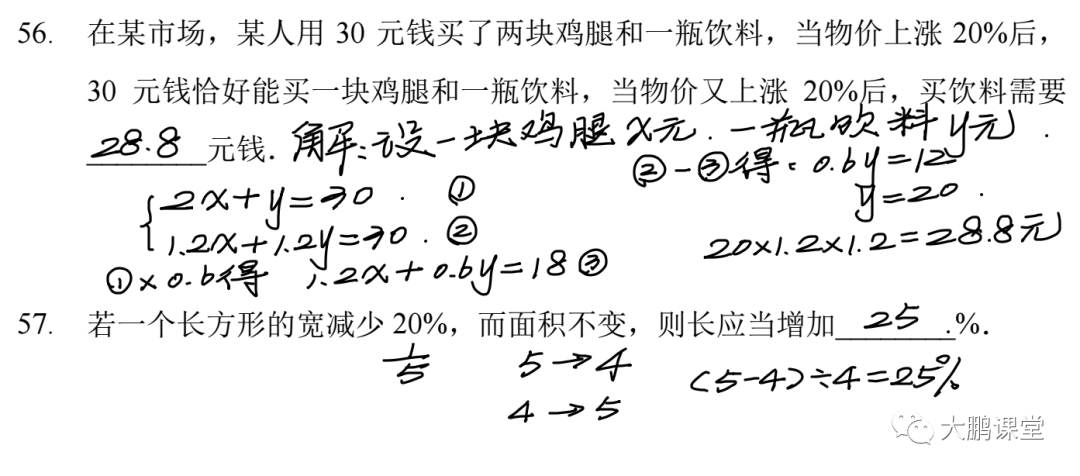 56. 在某市场，某人用 30 元钱买了两块鸡腿和一瓶饮料，当物价上涨 20%后，
30 元钱恰好能买一块鸡腿和一瓶饮料，当物价又上涨 20%后，买饮料需要
28.8 元钱. 解:设一块鸡腿x元. 一瓶饮料y元.
2x+y=30. ① ②-③得: 0.6y=12
y=20.
1.2x+1.2y=30. ② 20×1.2×1.2=28.8元
①×0.6得 1.2x+0.6y=18 ③
57. 若一个长方形的宽减少 20%，而面积不变，则长应当增加 25 .%.
1/5 5→4 (5-4)÷4=25%
4→5
大鹏课堂